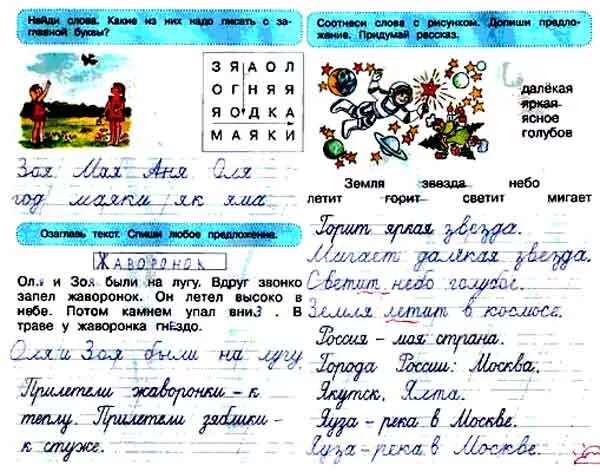 Найди слова. Какие из них надо писать с за-
главной буквы?
З Я А О Л
О Г Н Я Я
Я О Д К А
М А Я К И
Зоя Мая Аня Оля
год маяки як яма
Озаглавь текст. Спиши любое предложение.
ЖАВОРОНОК
Оля и Зоя были на лугу. Вдруг звонко
запел жаворонок. Он летел высоко в
небе. Потом камнем упал вниз. В
траве у жаворонка гнездо.
Оля и Зоя были на лугу
Прилетели жаворонки – к
теплу. Прилетели зяблики –
к стуже.
Соотнеси слова с рисунком. Допиши предло-
жение. Придумай рассказ.
далёкая
яркая
ясное
голубов
Земля звезда небо
летит горит светит мигает
Горит яркая звезда.
Мигает далёкая звезда.
Светит небо голубое.
Земля летит в космосе.
Россия – моя страна.
Города России: Москва,
Якутск, Ялта.
Яуза – река в Москве.
Яуза – река в Москве.